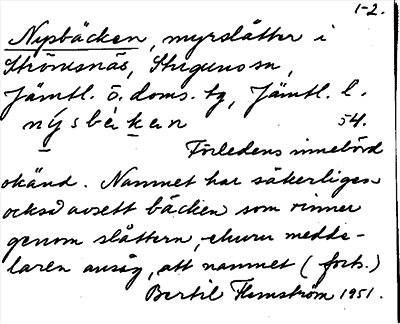 1-2.
Nysbäcken, myrslåtter i
Strömsnäs, Stuguns sn,
Jämtl. ö. doms. tg, Jämtl. l.
nýsbèken 54.
Förledens innebörd
okänd. Namnet har säkerligen
också avsett bäcken som rinner
genom slåttern, ehuru medde-
laren ansåg, att namnet (forts.)
Bertil Flemström 1951.